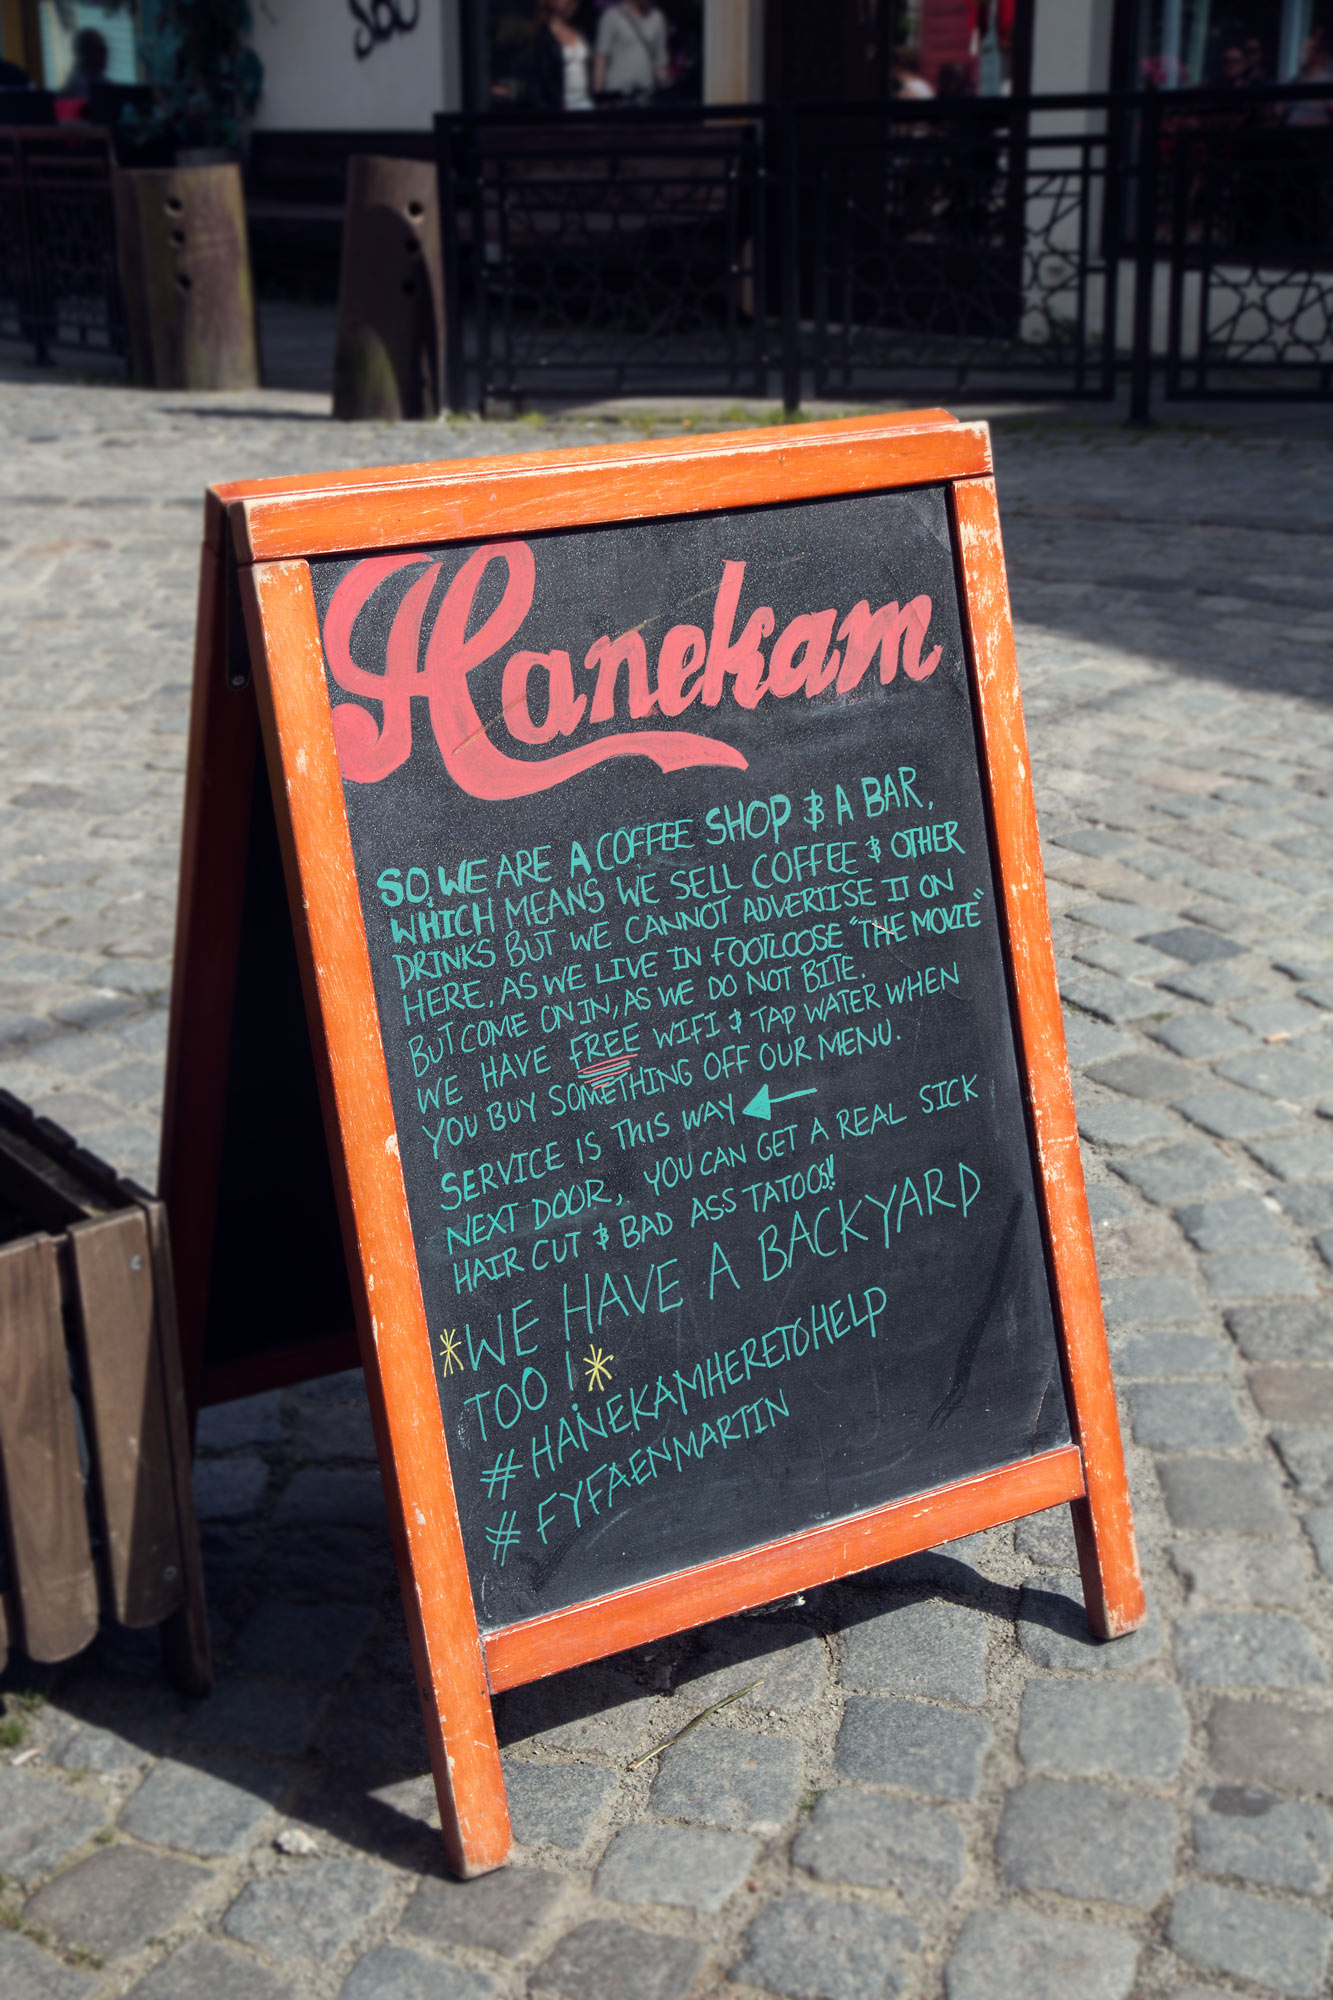 Hanekam
SO, WE ARE A COFFEE SHOP & A BAR,
WHICH MEANS WE SELL COFFEE & OTHER
DRINKS BUT WE CANNOT ADVERTISE IT ON
HERE, AS WE LIVE IN FOOTLOOSE "THE MOVIE"
BUT COME ON IN, AS WE DO NOT BITE.
WE HAVE FREE WIFI & TAP WATER WHEN
YOU BUY SOMETHING OFF OUR MENU.
SERVICE IS THIS WAY ←
NEXT DOOR, YOU CAN GET A REAL SICK
HAIR CUT & BAD ASS TATOOS!!
*WE HAVE A BACKYARD
TOO!*
#HANEKAMHERETOHELP
#FYFAENMARTIN